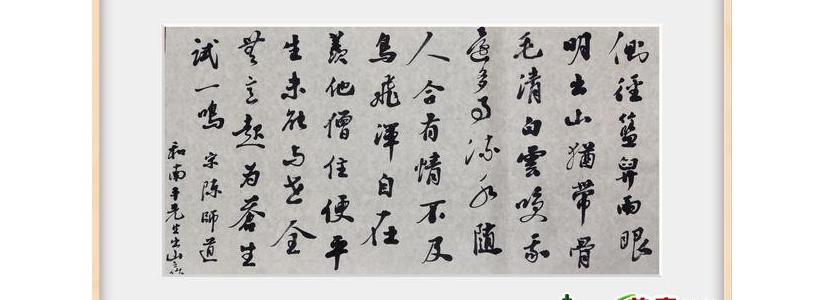 側徑籃舁兩眼
明出山猶帶骨
毛清白雲咲我
還多事流水隨
人合有情不及
鳥飛渾自在
羨他僧住便平
生未能与世全
無意起為蒼生
試一鳴 宋陳師道
和南丰先生出山之作